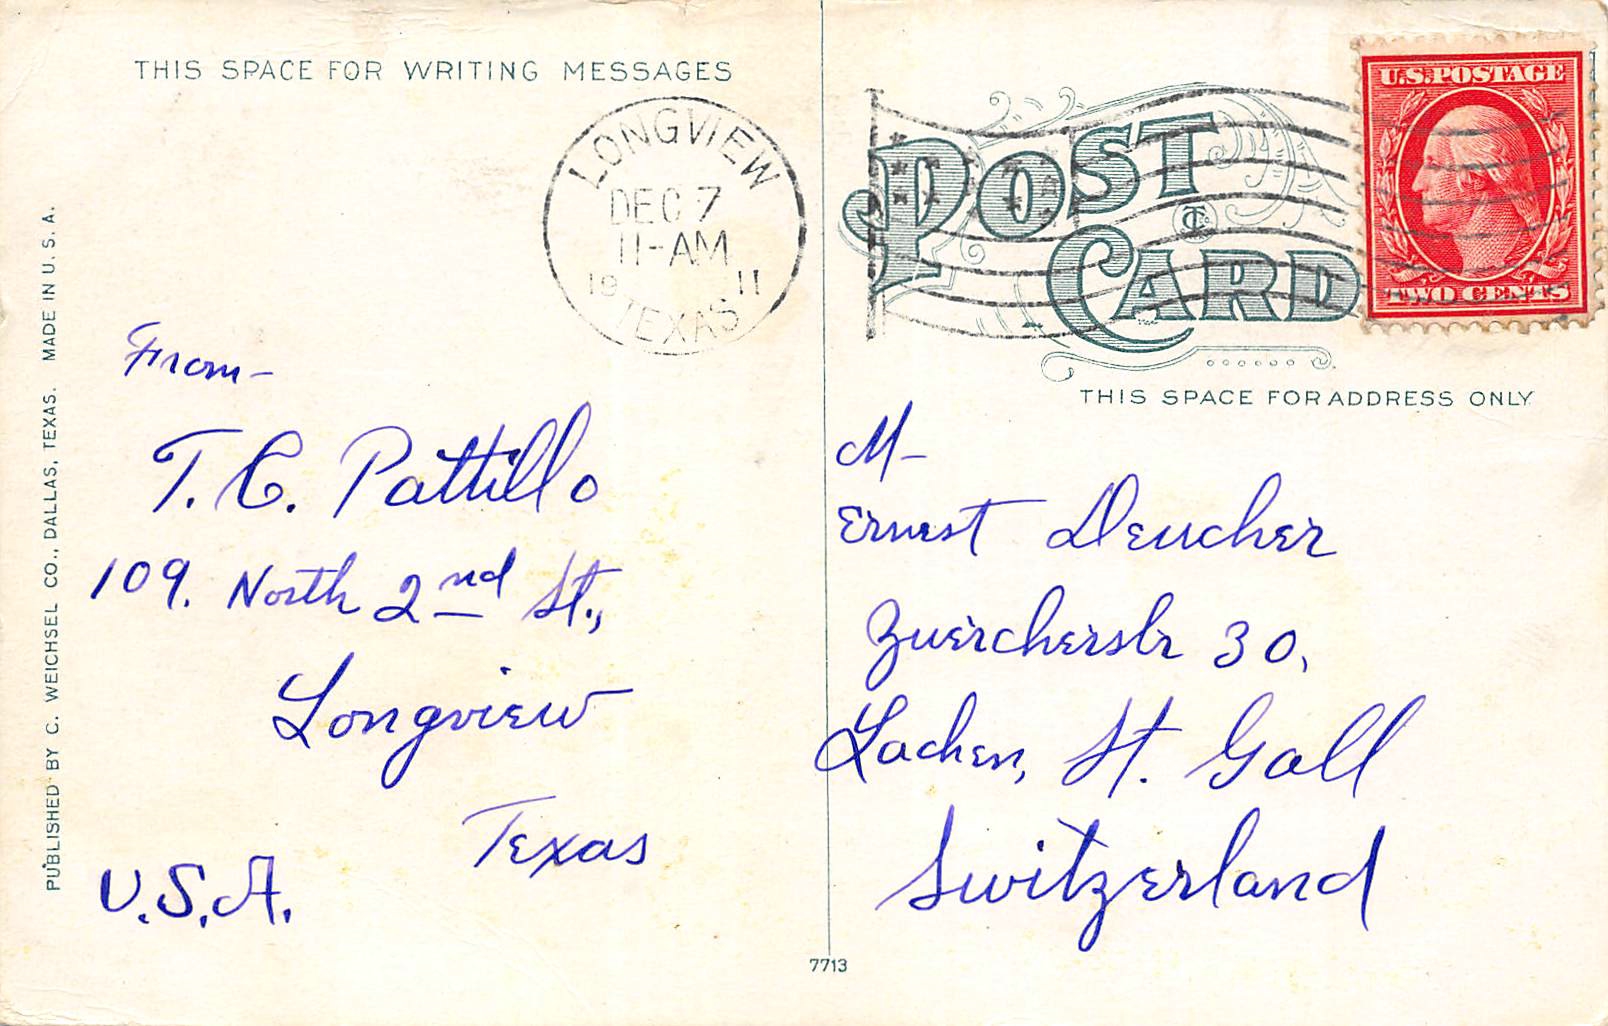 THIS SPACE FOR WRITING MESSAGES
LONGVIEW
DEC 7
11-AM
19 11
TEXAS
From-
T. C. Pattillo
109. North 2nd St.,
Longview
Texas
U.S.A.
PUBLISHED BY C. WEICHSEL CO., DALLAS, TEXAS. MADE IN U. S. A.
7713
POST
CARD
U.S. POSTAGE
TWO CENTS
THIS SPACE FOR ADDRESS ONLY
M-
Ernest Deucher
Zuercherstr 30,
Lachen, St. Gall
Switzerland